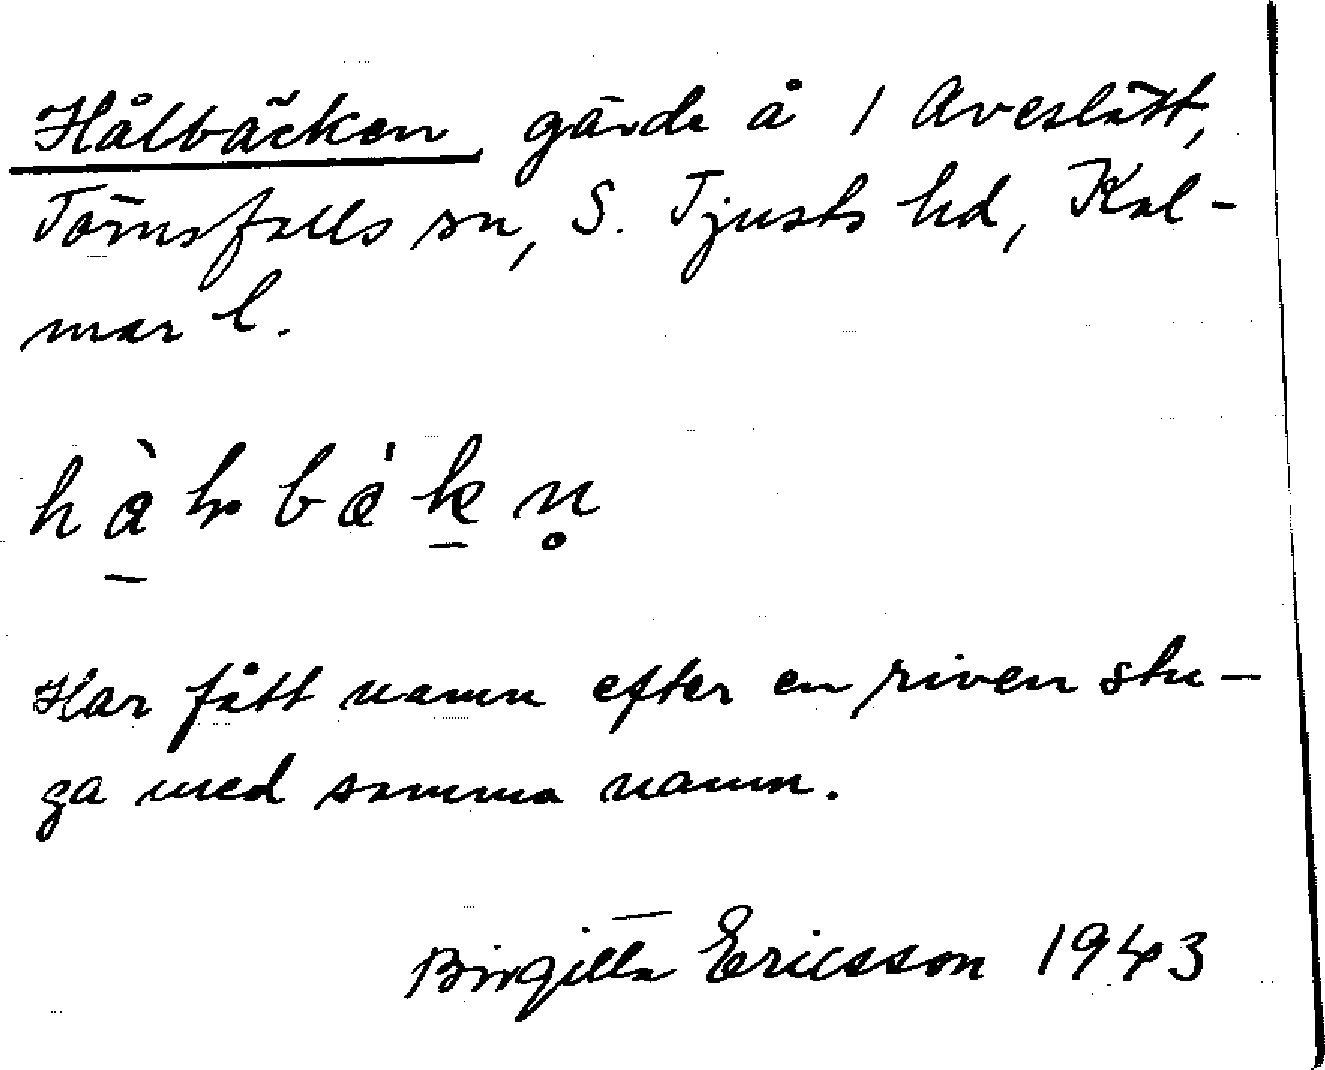 Hålbäcken, gärde å 1 Aveslätt,
Törnsfalls sn, S. Tjusts hd, Kal-
mar l.
Har fått namn efter en riven stu-
ga med samma namn.
Birgitta Ericsson 1943